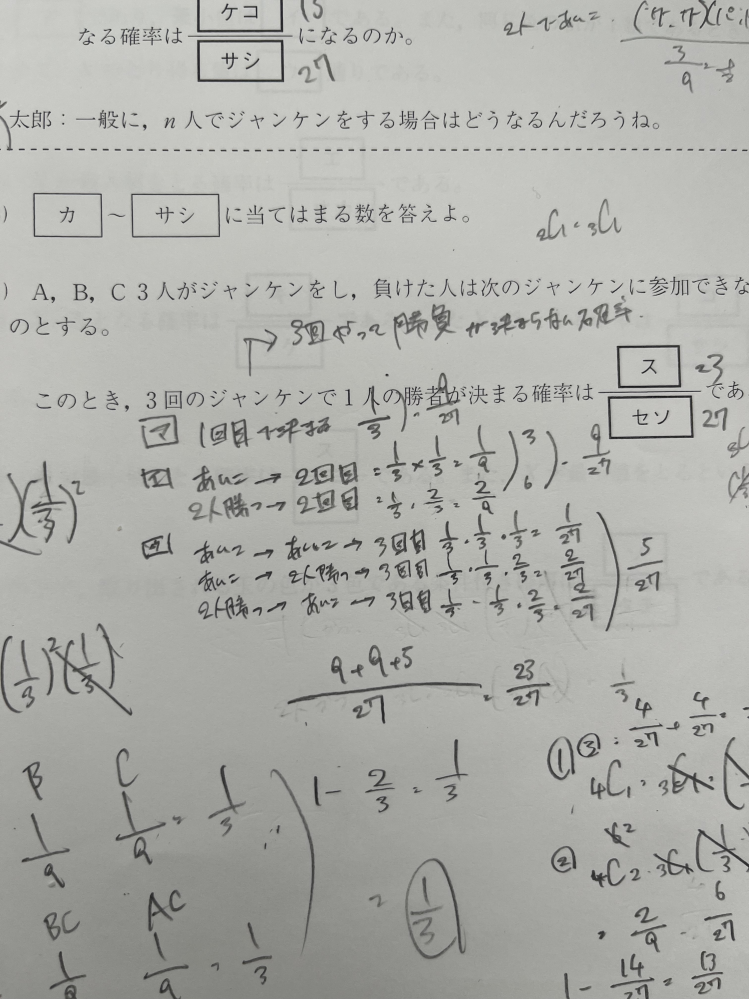 ケコ 13
なる確率は になるのか。
サシ 27
2人であいこ =
3/9 = 1/3
太郎：一般に，n 人でジャンケンをする場合はどうなるんだろうね。
) カ ～ サシ に当てはまる数を答えよ。
) A，B，C 3 人がジャンケンをし，負けた人は次のジャンケンに参加できな
のとする。
→ 3回やって 勝負が決まらない確率
このとき，3 回のジャンケンで 1 人の勝者が決まる確率は ス 23 であ
セソ 27
1回目で決まる 1/3 ) = 9/27
あいこ → 2回目 = 1/3 × 1/3 = 1/9 ) 3
2人勝つ → 2回目 = 1/3 · 2/3 = 2/9 ) 6 ) = 9/27
(1/3)²
あいこ → あいこ → 3回目 1/3 · 1/3 · 1/3 = 1/27
あいこ → 2人勝つ → 3回目 1/3 · 1/3 · 2/3 = 2/27 ) 5/27
2人勝つ → あいこ → 3回目 1/3 · 1/3 · 2/3 = 2/27
(1/3)² (1/3)
9+9+5 / 27 = 23/27
1/3
① ③ : 4/27 + 4/27
B C
1/9 1/9 = 1/3
1 - 2/3 = 1/3
BC AC
1/9 1/9 = 1/3
= 1/3
②
= 2/9 = 6/27
1 - 14/27 = 13/27